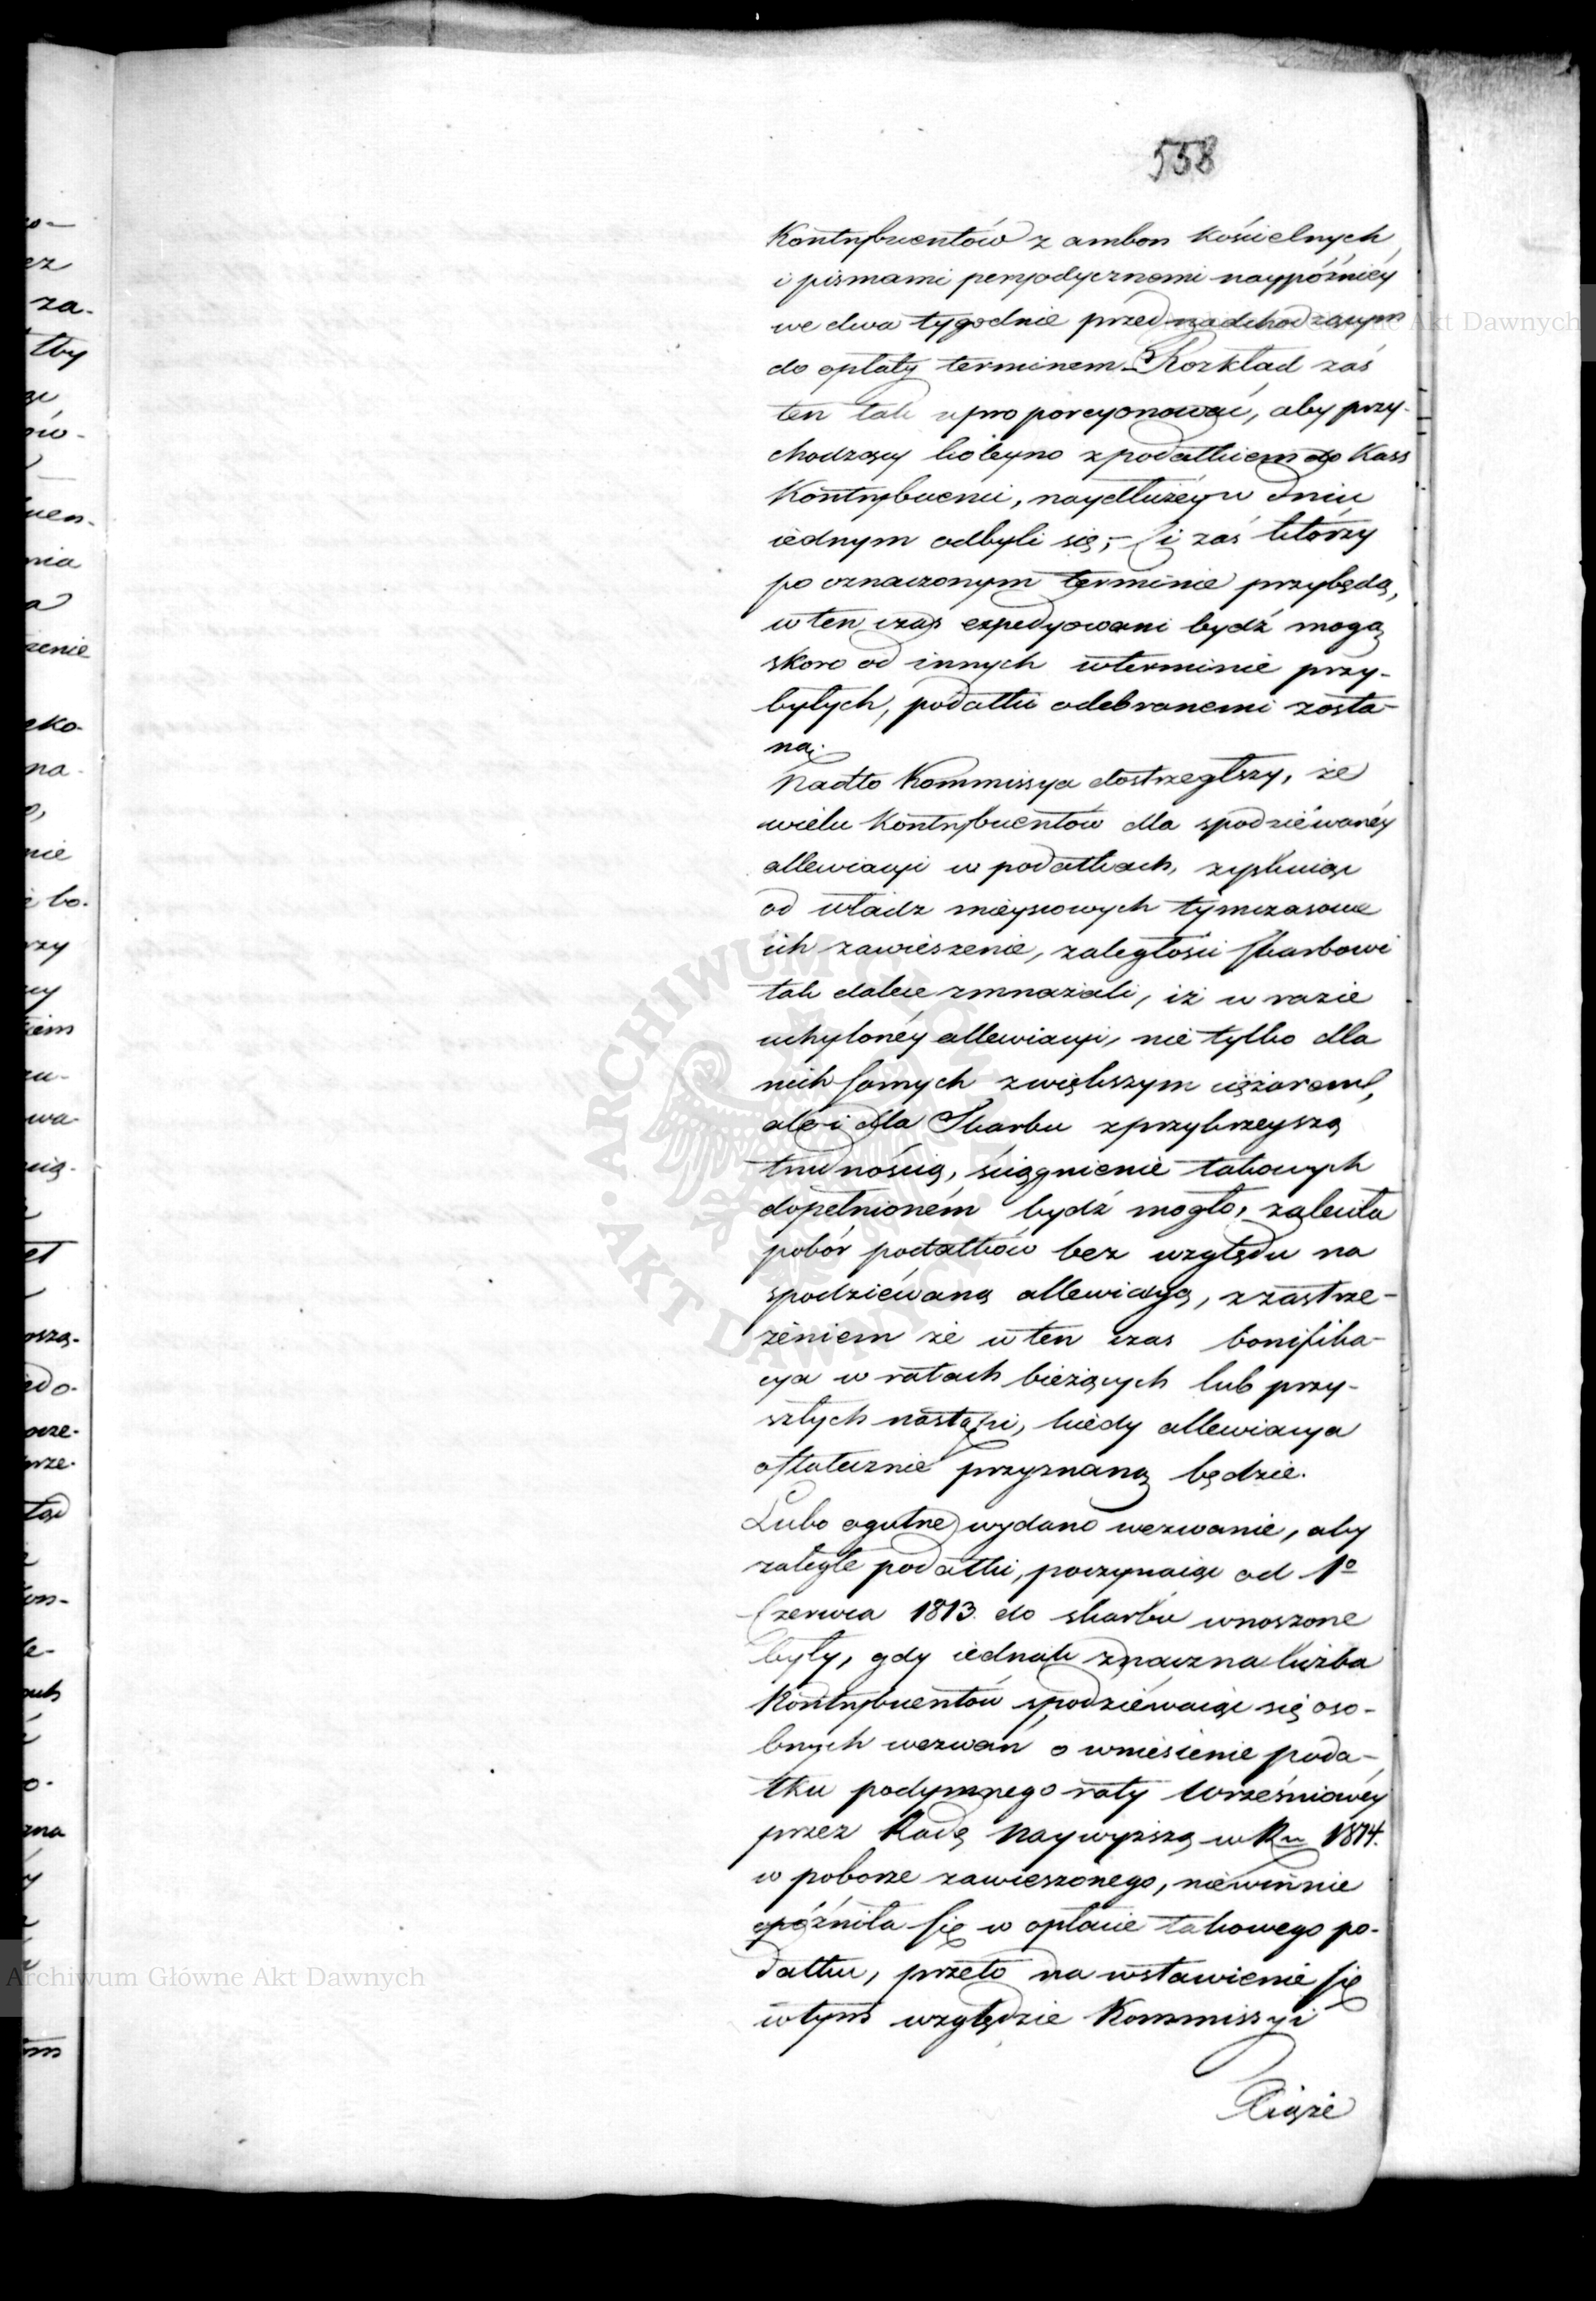 558
Kontrybuentów z ambon kościelnych
i pismami peryodycznemi naypóźniéy
we dwa tygodnie przed nadchodzącym
do opłaty terminem. Rozkład zaś
ten tak uproporcyonować, aby przy-
chodzący koleyno z podatkiem do Kass
Kontrybuenci, naydłużéy w dniu
iednym odbyli się; – Ci zaś którzy
po oznaczonym terminie przybędą,
w ten czas expedyowani bydź mogą
skoro od innych w terminie przy-
byłych, podatki odebranemi zosta-
ną.
Nadto Kommissya dostrzegłszy, że
wielu Kontrybuentów dla spodziéwanéy
allewiacyi w podatkach, zyskuiąc
od władz mieyscowych tymczasowe
ich zawieszenie, zaległości Skarbowi
tak dalece zmnażali, iż w razie
uchylonéy allewiacyi, nie tylko dla
nich samych z większym ciężarem,
ale i dla Skarbu z przykrzeyszą
trudnością, ściągnienie takowych
dopełnioném bydź mogło, zaleciła
pobór podatków bez względu na
spodziéwaną allewiacyą, z zastrze-
żeniem że w ten czas bonifika-
cya w ratach bieżących lub przy-
szłych nastąpi, kiedy allewiacya
ostatecznie przyznaną będzie.
Lubo ogulne wydano wezwanie, aby
zaległe podatki, poczynaiąc od 1º
Czerwca 1813. do skarbu wnoszone
były, gdy iednak znaczna liczba
Kontrybuentów spodziéwaiąc się oso-
bnych wezwań o wniesienie poda-
tku podymnego raty Wrześniowéy
przez Radę Naywyższą w Ru 1814.
w poborze zawieszonego, niewinnie
opóźniła się w opłacie takowego po-
datku, przeto na wstawienie się
w tym względzie Kommissyi
Xiąże
Archiwum Główne Akt Dawnych
Archiwum Główne Akt Dawnych
ARCHIWUM GŁÓWNE • AKT DAWNYCH •